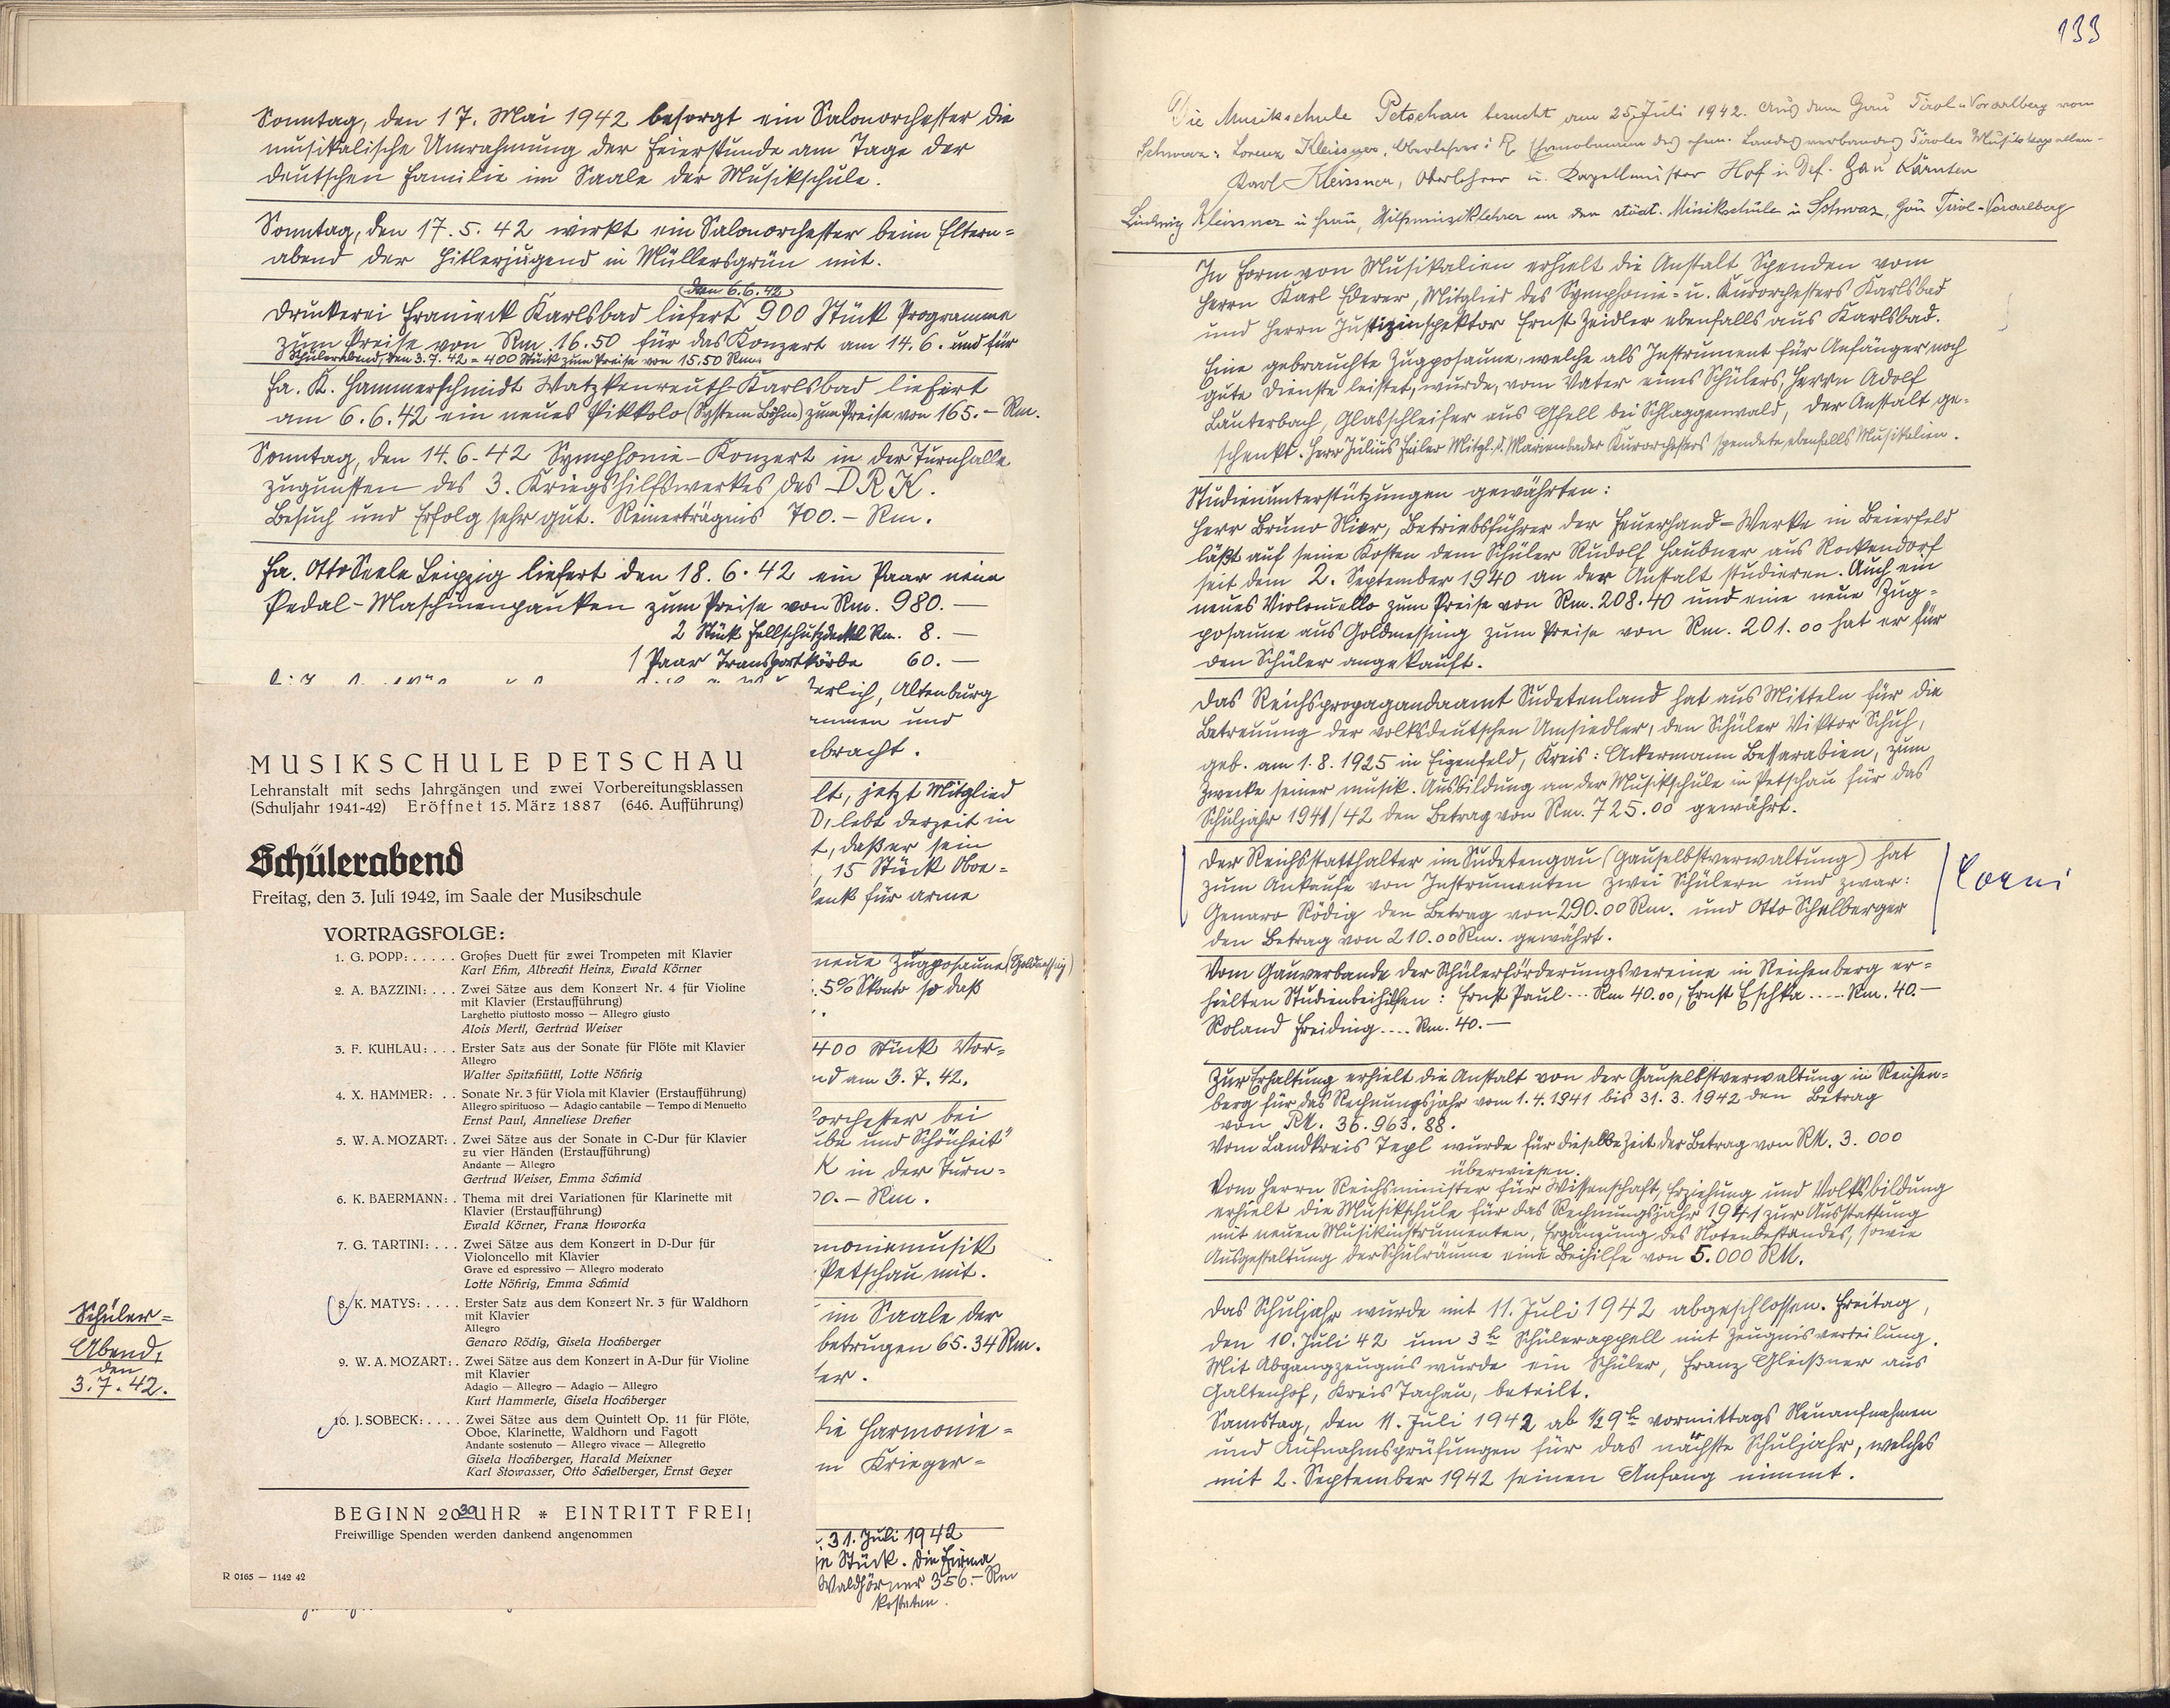 Sonntag, den 17. Mai 1942 besorgt ein Salonorchester die
musikalische Umrahmung der Feierstunde am Tage der
deutschen Familie im Saale der Musikschule.
Sonntag, den 17.5.42 wirkt ein Salonorchester beim Eltern=
abend der Hitlerjugend in Müllersgrün mit.
den 6.6.42
Druckerei Franieck Karlsbad liefert 900 Stück Programme
zum Preise von Rm. 16.50 für das Konzert am 14.6. und für
Schülerabend, den 3.7.42 = 400 Stück zum Preise von 15.50 Rm.
Fa. K. Hammerschmidt Watzkenreuth-Karlsbad liefert
am 6.6.42 ein neues Pikkolo (System Böhm) zum Preise von 165.- Rm.
Sonntag, den 14.6.42 Symphonie-Konzert in der Turnhalle
zugunsten des 3. Kriegshilfswerkes des DRK.
Besuch und Erfolg sehr gut. Reinerträgnis 700.- Rm.
Fa. Otto Seele Leipzig liefert den 18.6.42 ein Paar neue
Pedal-Maschinenpauken zum Preise von Rm. 980.—
2 Stück Fellschutzdeckel Rm. 8.—
1 Paar Transportkörbe 60.—
erlich, Altenburg
ammen und
ebracht.
lt, jetzt Mitglied
D, lebt derzeit in
t, daß er sein
, 15 Stück Oboe=
enk für arme
neue Zugposaune (Goldmessing)
. 5% Skonto so daß
400 Stück Vor=
nd am 3.7.42.
orchester bei
ube und Schönheit"
K in der Turn=
00.- Rm.
moniemusik
Petschau mit.
im Saale der
betrugen 65.34 Rm.
er.
die Harmonie=
m Krieger=
31. Juli 1942
je Stück. Die Firma
Waldhörner 356.- Rm
kosteten.
MUSIKSCHULE PETSCHAU
Lehranstalt mit sechs Jahrgängen und zwei Vorbereitungsklassen
(Schuljahr 1941-42) Eröffnet 15. März 1887 (646. Aufführung)
Schülerabend
Freitag, den 3. Juli 1942, im Saale der Musikschule
VORTRAGSFOLGE:
1. G. POPP: . . . . . Großes Duett für zwei Trompeten mit Klavier
Karl Efim, Albrecht Heinz, Ewald Körner
2. A. BAZZINI: . . . Zwei Sätze aus dem Konzert Nr. 4 für Violine
mit Klavier (Erstaufführung)
Larghetto piuttosto mosso — Allegro giusto
Alois Mertl, Gertrud Weiser
3. F. KUHLAU: . . . Erster Satz aus der Sonate für Flöte mit Klavier
Allegro
Walter Spitzhüttl, Lotte Nöhrig
4. X. HAMMER: . . Sonate Nr. 3 für Viola mit Klavier (Erstaufführung)
Allegro spirituoso — Adagio cantabile — Tempo di Menuetto
Ernst Paul, Anneliese Dreher
5. W. A. MOZART: . Zwei Sätze aus der Sonate in C-Dur für Klavier
zu vier Händen (Erstaufführung)
Andante — Allegro
Gertrud Weiser, Emma Schmid
6. K. BAERMANN: . Thema mit drei Variationen für Klarinette mit
Klavier (Erstaufführung)
Ewald Körner, Franz Howorka
7. G. TARTINI: . . . Zwei Sätze aus dem Konzert in D-Dur für
Violoncello mit Klavier
Grave ed espressivo — Allegro moderato
Lotte Nöhrig, Emma Schmid
8. K. MATYS: . . . . Erster Satz aus dem Konzert Nr. 3 für Waldhorn
mit Klavier
Allegro
Genaro Rödig, Gisela Hochberger
9. W. A. MOZART: . Zwei Sätze aus dem Konzert in A-Dur für Violine
mit Klavier
Adagio — Allegro — Adagio — Allegro
Kurt Hammerle, Gisela Hochberger
10. J. SOBECK: . . . . Zwei Sätze aus dem Quintett Op. 11 für Flöte,
Oboe, Klarinette, Waldhorn und Fagott
Andante sostenuto — Allegro vivace — Allegretto
Gisela Hochberger, Harald Meixner
Karl Stowasser, Otto Schelberger, Ernst Geyer
BEGINN 20 30 UHR * EINTRITT FREI!
Freiwillige Spenden werden dankend angenommen
R 0165 — 1142 42
Schüler=
Abend,
den
3.7.42.
133
Die Musikschule Petschau besucht am 25. Juli 1942. Aus dem Gau Tirol u. Vorarlberg von
Schwaz: Lorenz Kleissner, Oberlehrer i R des ehem. Landesverbandes Tiroler Musikkapellen-
Karl Kleissner, Oberlehrer u. Kapellmeister Gau Kärnten
Ludwig Kleissner u Frau, Hilfsmusiklehrer an der städt. Musikschule in Schwaz, Gau Tirol-Vorarlberg
In Form von Musikalien erhielt die Anstalt Spenden vom
Herrn Karl Ederer, Mitglied des Symphonie- u. Kurorchesters Karlsbad
und Herrn Justizinspektor Ernst Zeidler ebenfalls aus Karlsbad.
Eine gebrauchte Zugposaune, welche als Instrument für Anfänger noch
gute Dienste leistet, wurde, vom Vater eines Schülers, Herrn Adolf
Lauterbach, Glasschleifer aus Gfell bei Schlaggenwald, der Anstalt ge-
schenkt. Herr Julius Feiler Mitgl. d. Marienbader Kurorchesters spendete ebenfalls Musikalien.
Studienunterstützungen gewährten:
Herr Bruno Nier, Betriebsführer der Feuerhand-Werke in Beierfeld
läßt auf seine Kosten dem Schüler Rudolf Haubner aus Rockendorf
seit dem 2. September 1940 an der Anstalt studieren. Auch ein
neues Violoncello zum Preise von Rm. 208.40 und eine neue Zug=
posaune aus Goldmessing zum Preise von Rm. 201.00 hat er für
den Schüler angekauft.
Das Reichspropagandaamt Sudetenland hat aus Mitteln für die
Betreuung der volksdeutschen Umsiedler, den Schüler Viktor Schuh,
geb. am 1.8.1925 in Eigenfeld, Kreis: Ackermann Bessarabien, zum
Zwecke seiner musik. Ausbildung an der Musikschule in Petschau für das
Schuljahr 1941/42 den Betrag von Rm. 725.00 gewährt.
Der Reichsstatthalter im Sudetengau (Gauselbstverwaltung) hat
zum Ankaufe von Instrumenten zwei Schülern und zwar:
Genaro Rödig den Betrag von 290.00 Rm. und Otto Schelberger
den Betrag von 210.00 Rm. gewährt.
Corni
Vom Gauverbande der Schülerförderungsvereine in Reichenberg er=
hielten Studienbeihilfen: Ernst Paul... Rm 40.00, Ernst Eschka..... Rm. 40.—
Roland Freiding.... Rm. 40.—
Zur Erhaltung erhielt die Anstalt von der Gauselbstverwaltung in Reichen=
berg für das Rechnungsjahr vom 1.4.1941 bis 31.3.1942 den Betrag
von RM. 36.963.88.
Vom Landkreis Tepl wurde für dieselbe Zeit der Betrag von RM. 3.000
überwiesen.
Vom Herrn Reichsminister für Wissenschaft, Erziehung und Volksbildung
erhielt die Musikschule für das Rechnungsjahr 1941 zur Ausstattung
mit neuen Musikinstrumenten, Ergänzung des Notenbestandes, sowie
Ausgestaltung der Schulräume eine Beihilfe von 5.000 RM.
Das Schuljahr wurde mit 11. Juli 1942 abgeschlossen. Freitag,
den 10. Juli 42 um 3h Schülerappell mit Zeugnisverteilung.
Mit Abgangzeugnis wurde ein Schüler, Franz Gleißner aus
Galtenhof, Kreis Tachau, beteilt.
Samstag, den 11. Juli 1942 ab ½9h vormittags Neuaufnahmen
und Aufnahmsprüfungen für das nächste Schuljahr, welches
mit 2. September 1942 seinen Anfang nimmt.